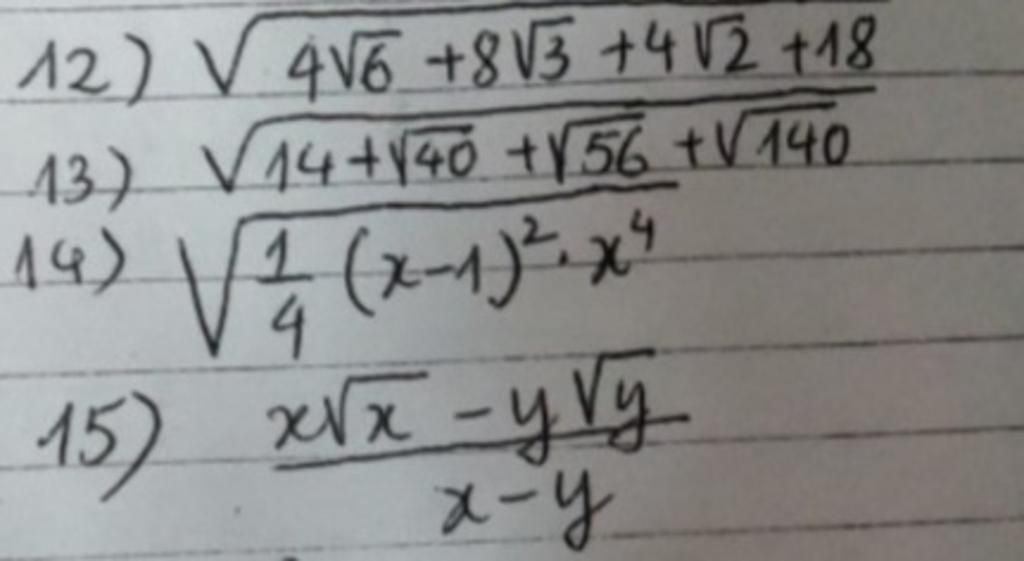 12) √(4√6 + 8√3 + 4√2 + 18)
13) √(14 + √40 + √56 + √140)
14) √(1/4 (x-1)² · x⁴)
15) (x√x - y√y)/(x - y)